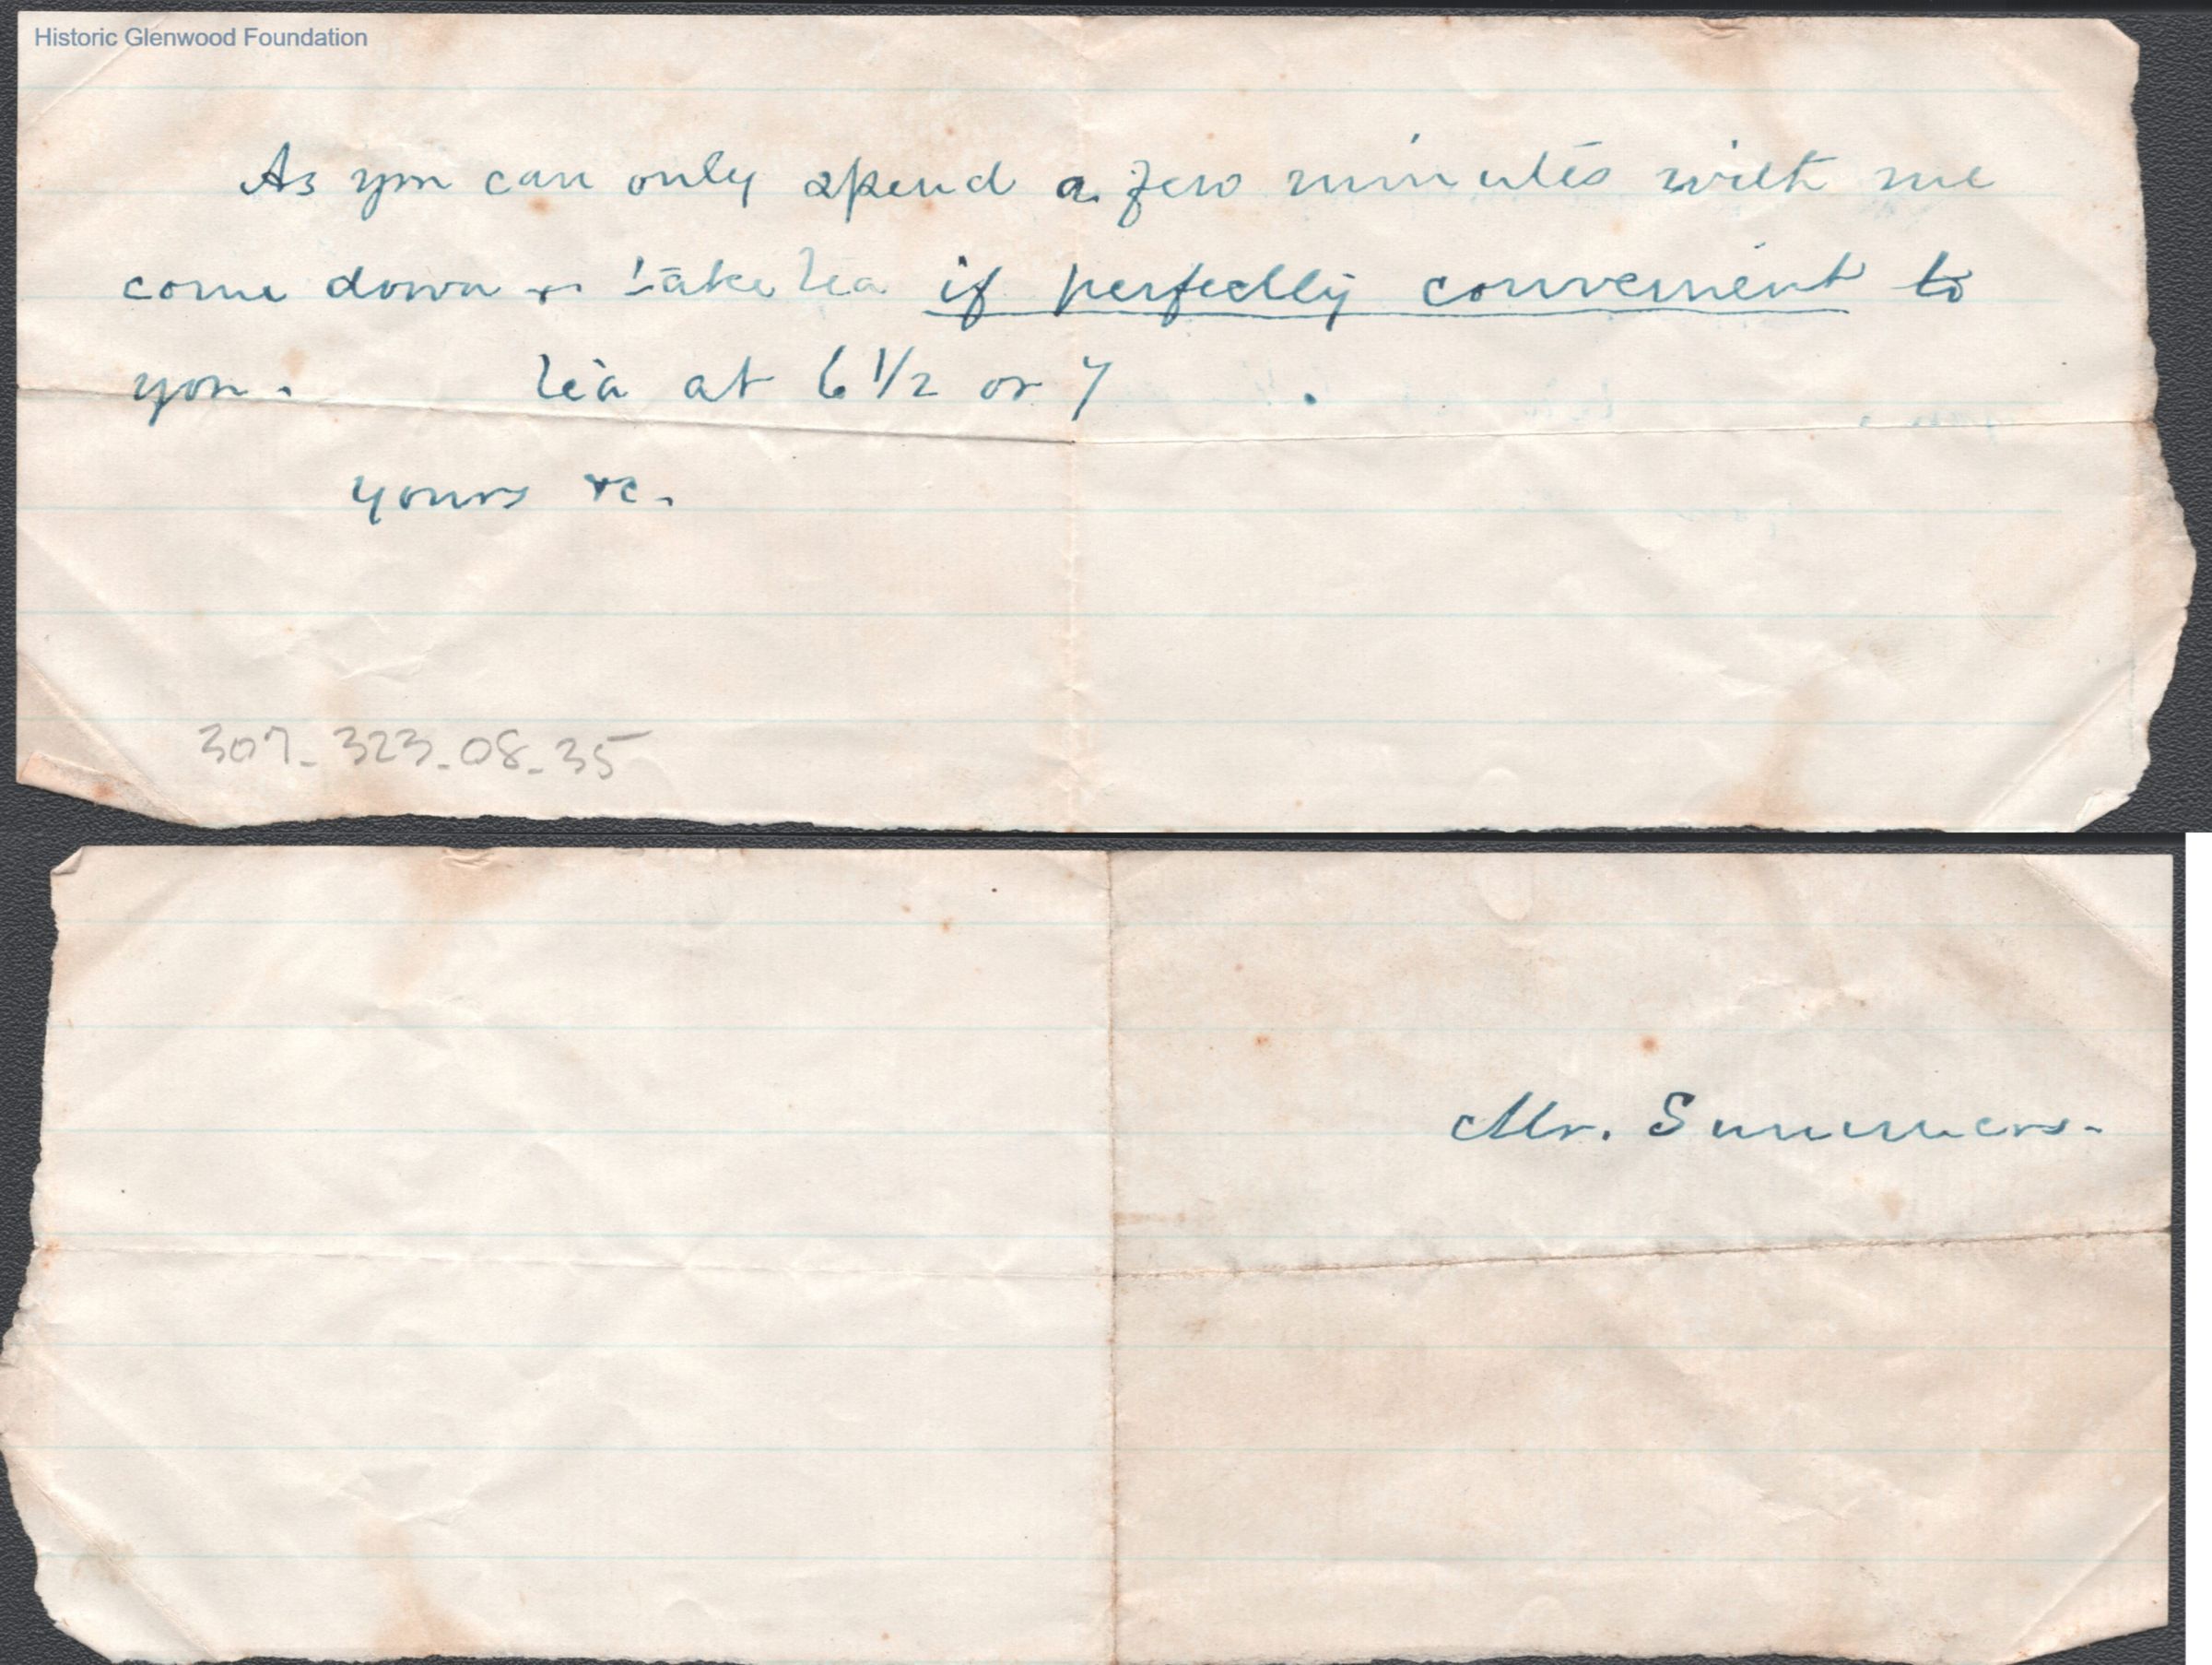 Historic Glenwood Foundation
As you can only spend a few minutes with me
come down & take tea if perfectly convenient to
you. tea at 6 1/2 or 7
yours &c.
307-323-08-35
Mr. Summers.